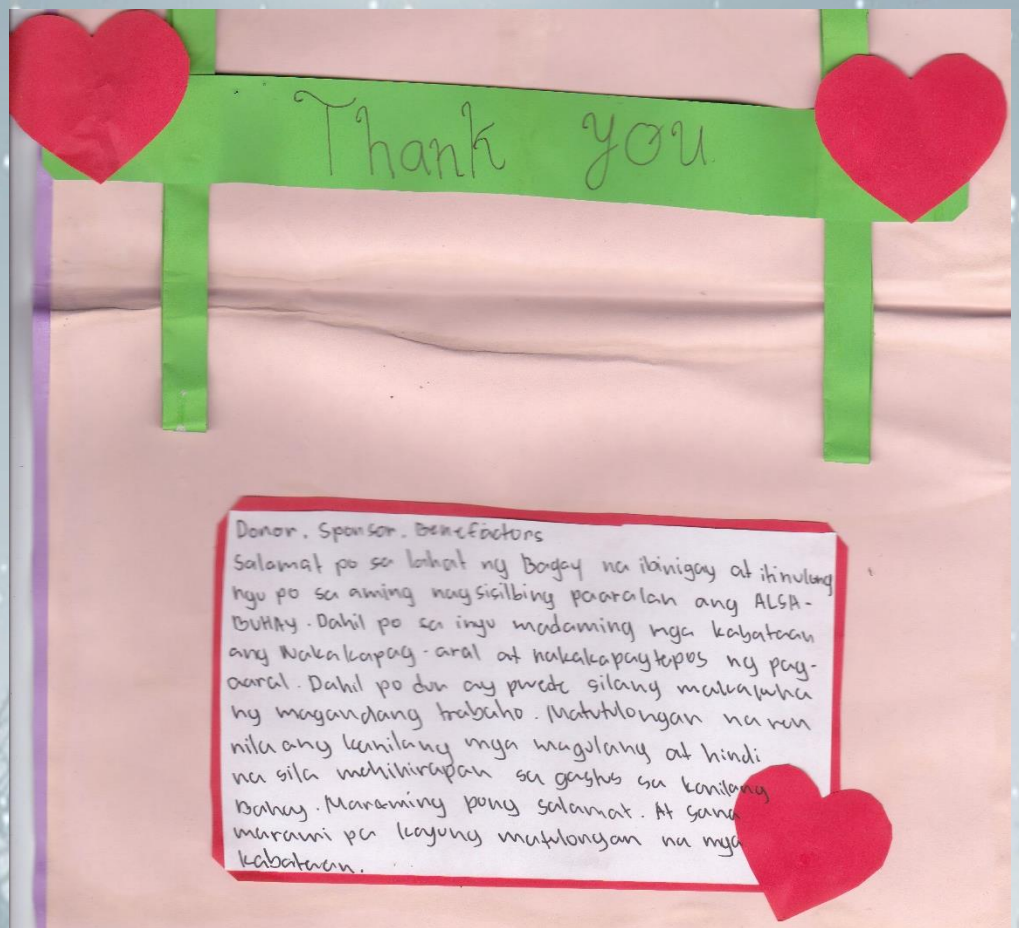 Thank you
Donor. Sponsor. Benefactors
Salamat po sa lahat ng Bagay na ibinigay at itinulong
nyu po sa aming nagsisilbing paaralan ang ALSA-
BUHAY. Dahil po sa inyu madaming mga kabataan
ang Nakakapag-aral at nakakapagtapos ng pag-
aaral. Dahil po dun ay pwede silang makakuha
ng magandang trabaho. Matutulongan na ren
nila ang kanilang mga magulang at hindi
na sila mahihirapan sa gastus sa kanilang
Bahay. Maraming pong salamat. At sana
marami pa kayung matulongan na mga
kabataan.